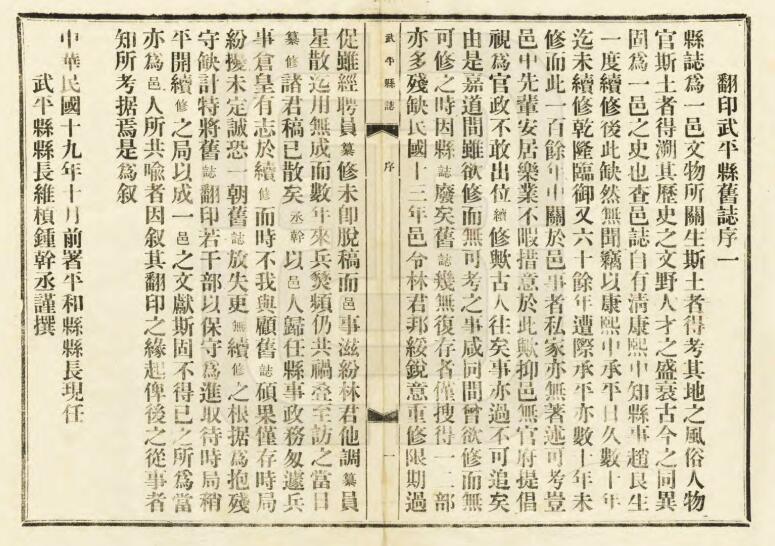 翻印武平縣舊誌序一
縣誌爲一邑文物所關生斯土者得考其地之風俗人物
官斯土者得溯其歷史之文野人才之盛衰古今之同異
固爲一邑之史也查邑誌自有淸康熙中知縣事趙良生
一度續修後此缺然無聞竊以康熙中承平日久數十年
迄未續修乾隆臨御又六十餘年遭際承平亦數十年未
修而此一百餘年中關於邑事者私家亦無著述可考豈
邑中先輩安居樂業不暇措意於此歟抑邑無官府提倡
視爲官政不敢出位續修歟古人往矣事亦過不可追矣
由是嘉道間雖欲修而無可考之事咸同間曾欲修而無
可修之時因縣誌廢矣舊誌幾無復存者僅搜得一二部
亦多殘缺民國十三年邑令林君邦綏銳意重修限期過
武平縣誌
序
一
促雖經聘員纂修未卽脫稿而邑事滋紛林君他調纂員
星散迄用無成而數年來兵燹頻仍共禍疊至訪之當日
纂修諸君稿已散矣丞幹以邑人歸任縣事政務匆遽兵
事倉皇有志於續修而時不我與顧舊誌碩果僅存時局
紛擾未定誠恐一朝舊誌放失更無續修之根据爲抱殘
守缺計特將舊誌翻印若干部以保守爲進取待時局稍
平開續修之局以成一邑之文獻斯固不得已之所爲當
亦爲邑人所共喩者因叙其翻印之緣起俾後之從事者
知所考据焉是爲叙
中華民國十九年十月前署平和縣縣長現任
武平縣縣長維楨鍾幹丞謹撰